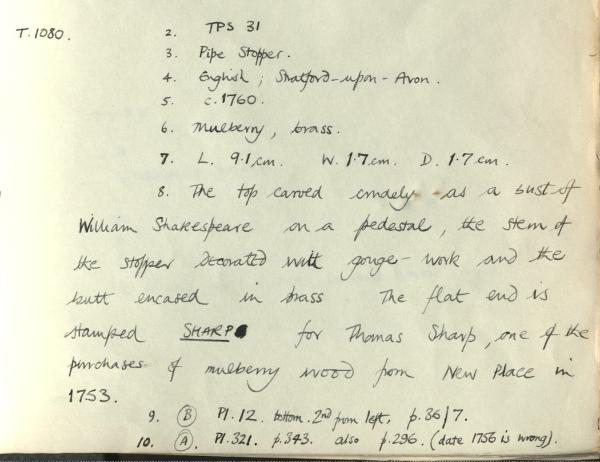 T.1080. 2. TPS 31
3. Pipe Stopper.
4. English ; Stratford-upon-Avon.
5. c.1760.
6. Mulberry, brass.
7. L. 9.1cm. W. 1.7cm. D. 1.7cm.
8. The top carved crudely as a bust of
William Shakespeare on a pedestal, the stem of
the stopper decorated with gouge-work and the
butt encased in brass The flat end is
stamped SHARP for Thomas Sharp, one of the
purchases of mulberry wood from New Place in
1753.
9. (B) Pl.12. bottom. 2nd from left, p.36/7.
10. (A). Pl.321. p.343. also p.296. (date 1756 is wrong).